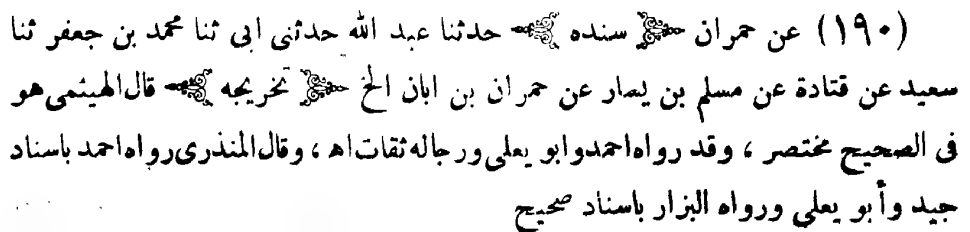 (١٩٠) عن حمران ﴿ سنده ﴾ حدثنا عبد الله حدثنى ابى ثنا محمد بن جعفر ثنا
سعيد عن قتادة عن مسلم بن يسار عن حمران بن ابان الخ ﴿ تخريجه ﴾ قال الهيثمى هو
فى الصحيح مختصر ، وقد رواه احمد وابو يعلى ورجاله ثقات اه ، وقال المنذرى رواه احمد باسناد
جيد وأبو يعلى ورواه البزار باسناد صحيح